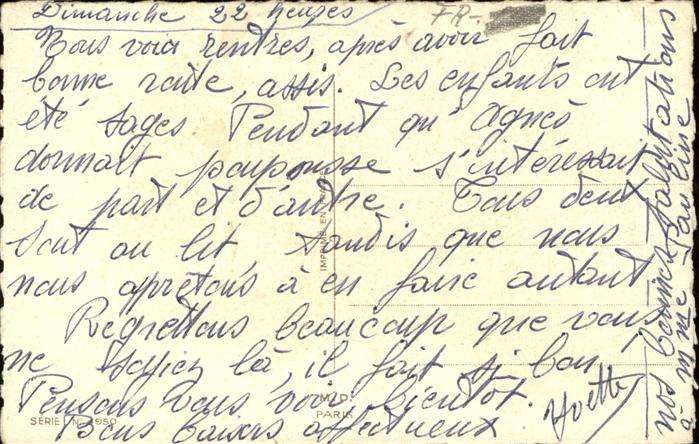 Dimanche 22 heures
FR-
Nous voici rentrés, après avoir fait
bonne route, assis. Les enfants ont
été sages. Pendant qu'Agnès
dormait poupousse s'intéressait
de part et d'autre. Tous deux
sont au lit, tandis que nous
nous apretons à en faire autant
Regrettons beaucoup que vous
ne soyiez là, il fait si bon.
Pensons vous voir bientôt.
Bons baisers affectueux
Yvette
nos bonnes salutations
à mme Pauline
IMPRIMÉ EN
M.D.
PARIS
SERIE N° 950